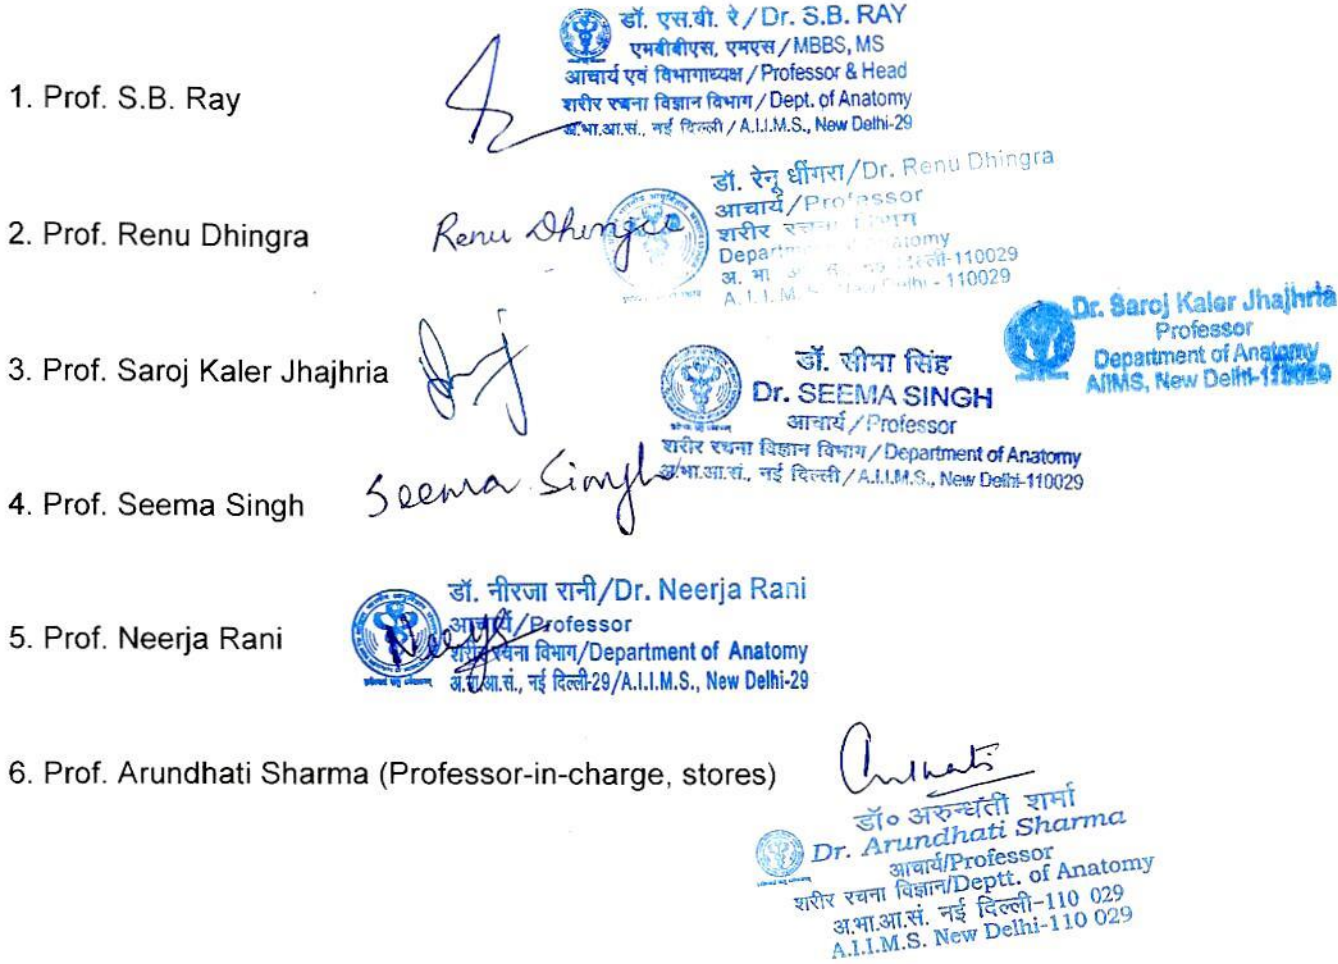 डॉ. एस.बी. रे / Dr. S.B. RAY
एमबीबीएस, एमएस / MBBS, MS
आचार्य एवं विभागाध्यक्ष / Professor & Head
शरीर रचना विज्ञान विभाग / Dept. of Anatomy
अ.भा.आ.सं., नई दिल्ली / A.I.I.M.S., New Delhi-29
1. Prof. S.B. Ray
डॉ. रेनू धींगरा/Dr. Renu Dhingra
आचार्य/Professor
शरीर रचना विभाग
Department of Anatomy
अ. भा. दिल्ली-110029
A. I. I. M. S. New Delhi - 110029
2. Prof. Renu Dhingra
Renu Dhingra
Dr. Saroj Kaler Jhajhria
Professor
Department of Anatomy
AIIMS, New Delhi-110029
3. Prof. Saroj Kaler Jhajhria
डॉ. सीमा सिंह
Dr. SEEMA SINGH
आचार्य / Professor
शरीर रचना विज्ञान विभाग / Department of Anatomy
अ.भा.आ.सं., नई दिल्ली / A.I.I.M.S., New Delhi-110029
4. Prof. Seema Singh
Seema Singh
डॉ. नीरजा रानी/Dr. Neerja Rani
आचार्य/Professor
शरीर रचना विभाग/Department of Anatomy
अ.भा.आ.सं., नई दिल्ली-29/A.I.I.M.S., New Delhi-29
5. Prof. Neerja Rani
6. Prof. Arundhati Sharma (Professor-in-charge, stores)
डॉ० अरुन्धती शर्मा
Dr. Arundhati Sharma
आचार्य/Professor
शरीर रचना विज्ञान/Deptt. of Anatomy
अ.भा.आ.सं. नई दिल्ली-110 029
A.I.I.M.S. New Delhi-110 029